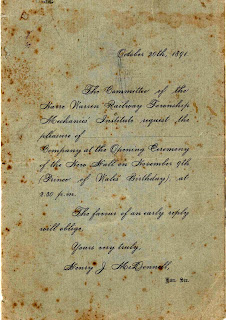 October 20th, 1891
The Committee of the
Narre Warren Railway Township
Mechanics' Institute request the
pleasure of
Company at the Opening Ceremony
of the New Hall on November 9th
(Prince of Wales Birthday), at
2.30 p.m.
The favour of an early reply
will oblige,
Yours very truly,
Henry J. McDonnell,
Hon. Sec.